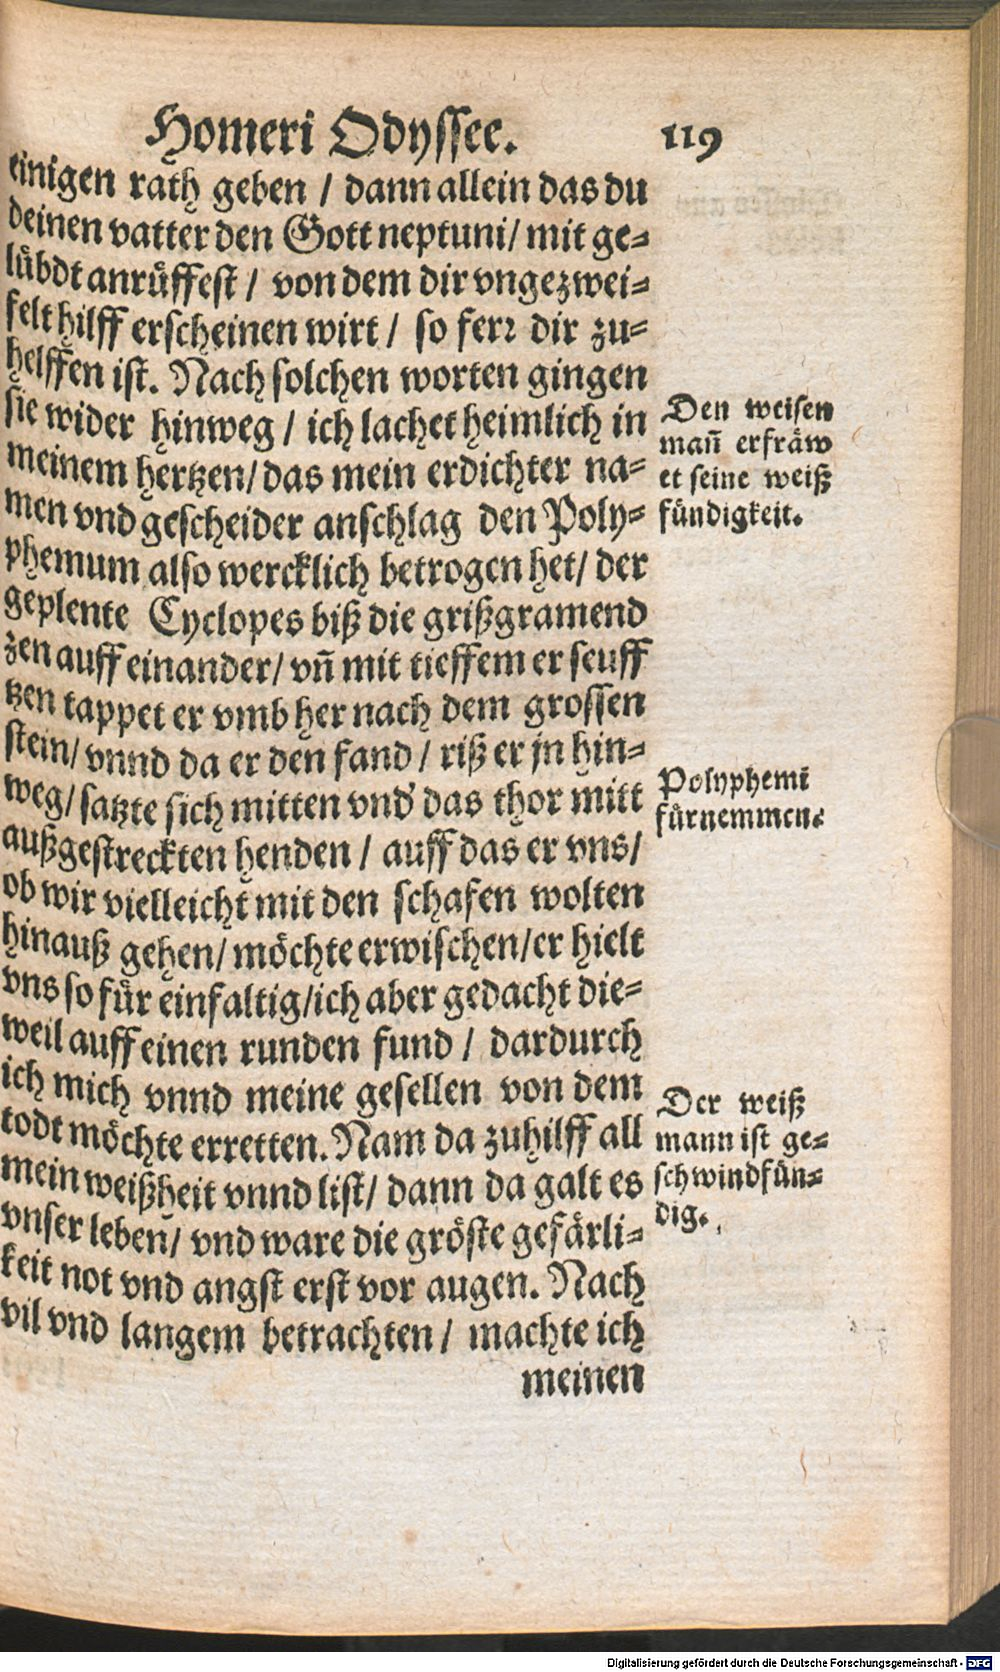 Homeri Odyssee. 119
einigen rath geben / dann allein das du
deinen vatter den Gott neptuni/ mit ge⸗
lübdt anrüffest / von dem dir vngezwei⸗
felt hilff erscheinen wirt / so ferꝛ dir zu⸗
helffen ist. Nach solchen worten gingen
sie wider hinweg / ich lachet heimlich in
meinem hertzen/ das mein erdichter na⸗
men vnd gescheider anschlag den Poly⸗
phemum also wercklich betrogen het/ der
geplente Cyclopes biß die grißgramend
zen auff einander/ vn̄ mit tieffem er seuff
tzen tappet er vmb her nach dem grossen
stein/ vnnd da er den fand / riß er jn hin⸗
weg/ satzte sich mitten vnd̕ das thor mitt
außgestreckten henden / auff das er vns/
ob wir vielleicht mit den schafen wolten
hinauß gehen/ möchte erwischen/ er hielt
vns so für einfaltig/ ich aber gedacht die⸗
weil auff einen runden fund / dardurch
ich mich vnnd meine gesellen von dem
todt möchte erretten. Nam da zuhilff all
mein weißheit vnnd list/ dann da galt es
vnser leben/ vnd ware die gröste gefärli⸗
keit not vnd angst erst vor augen. Nach
vil vnd langem betrachten / machte ich
meinen
Den weisen
man̄ erfräw
et seine weiß
fündigkeit.
Polyphemi
fürnemmen.
Der weiß
mann ist ge⸗
schwindfün⸗
dig.
Digitalisierung gefördert durch die Deutsche Forschungsgemeinschaft - DFG